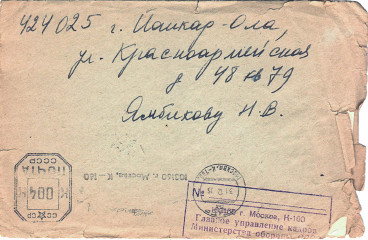 424025 г. Йошкар-Ола,
ул. Красноармейская
д 48 кв 79
Ямбикову Н.В.
СССР
ПОЧТА
К 004
103160 г. Москва, К-160
№
103160 г. Москва, К-160
Главное управление кадров
Министерства обороны